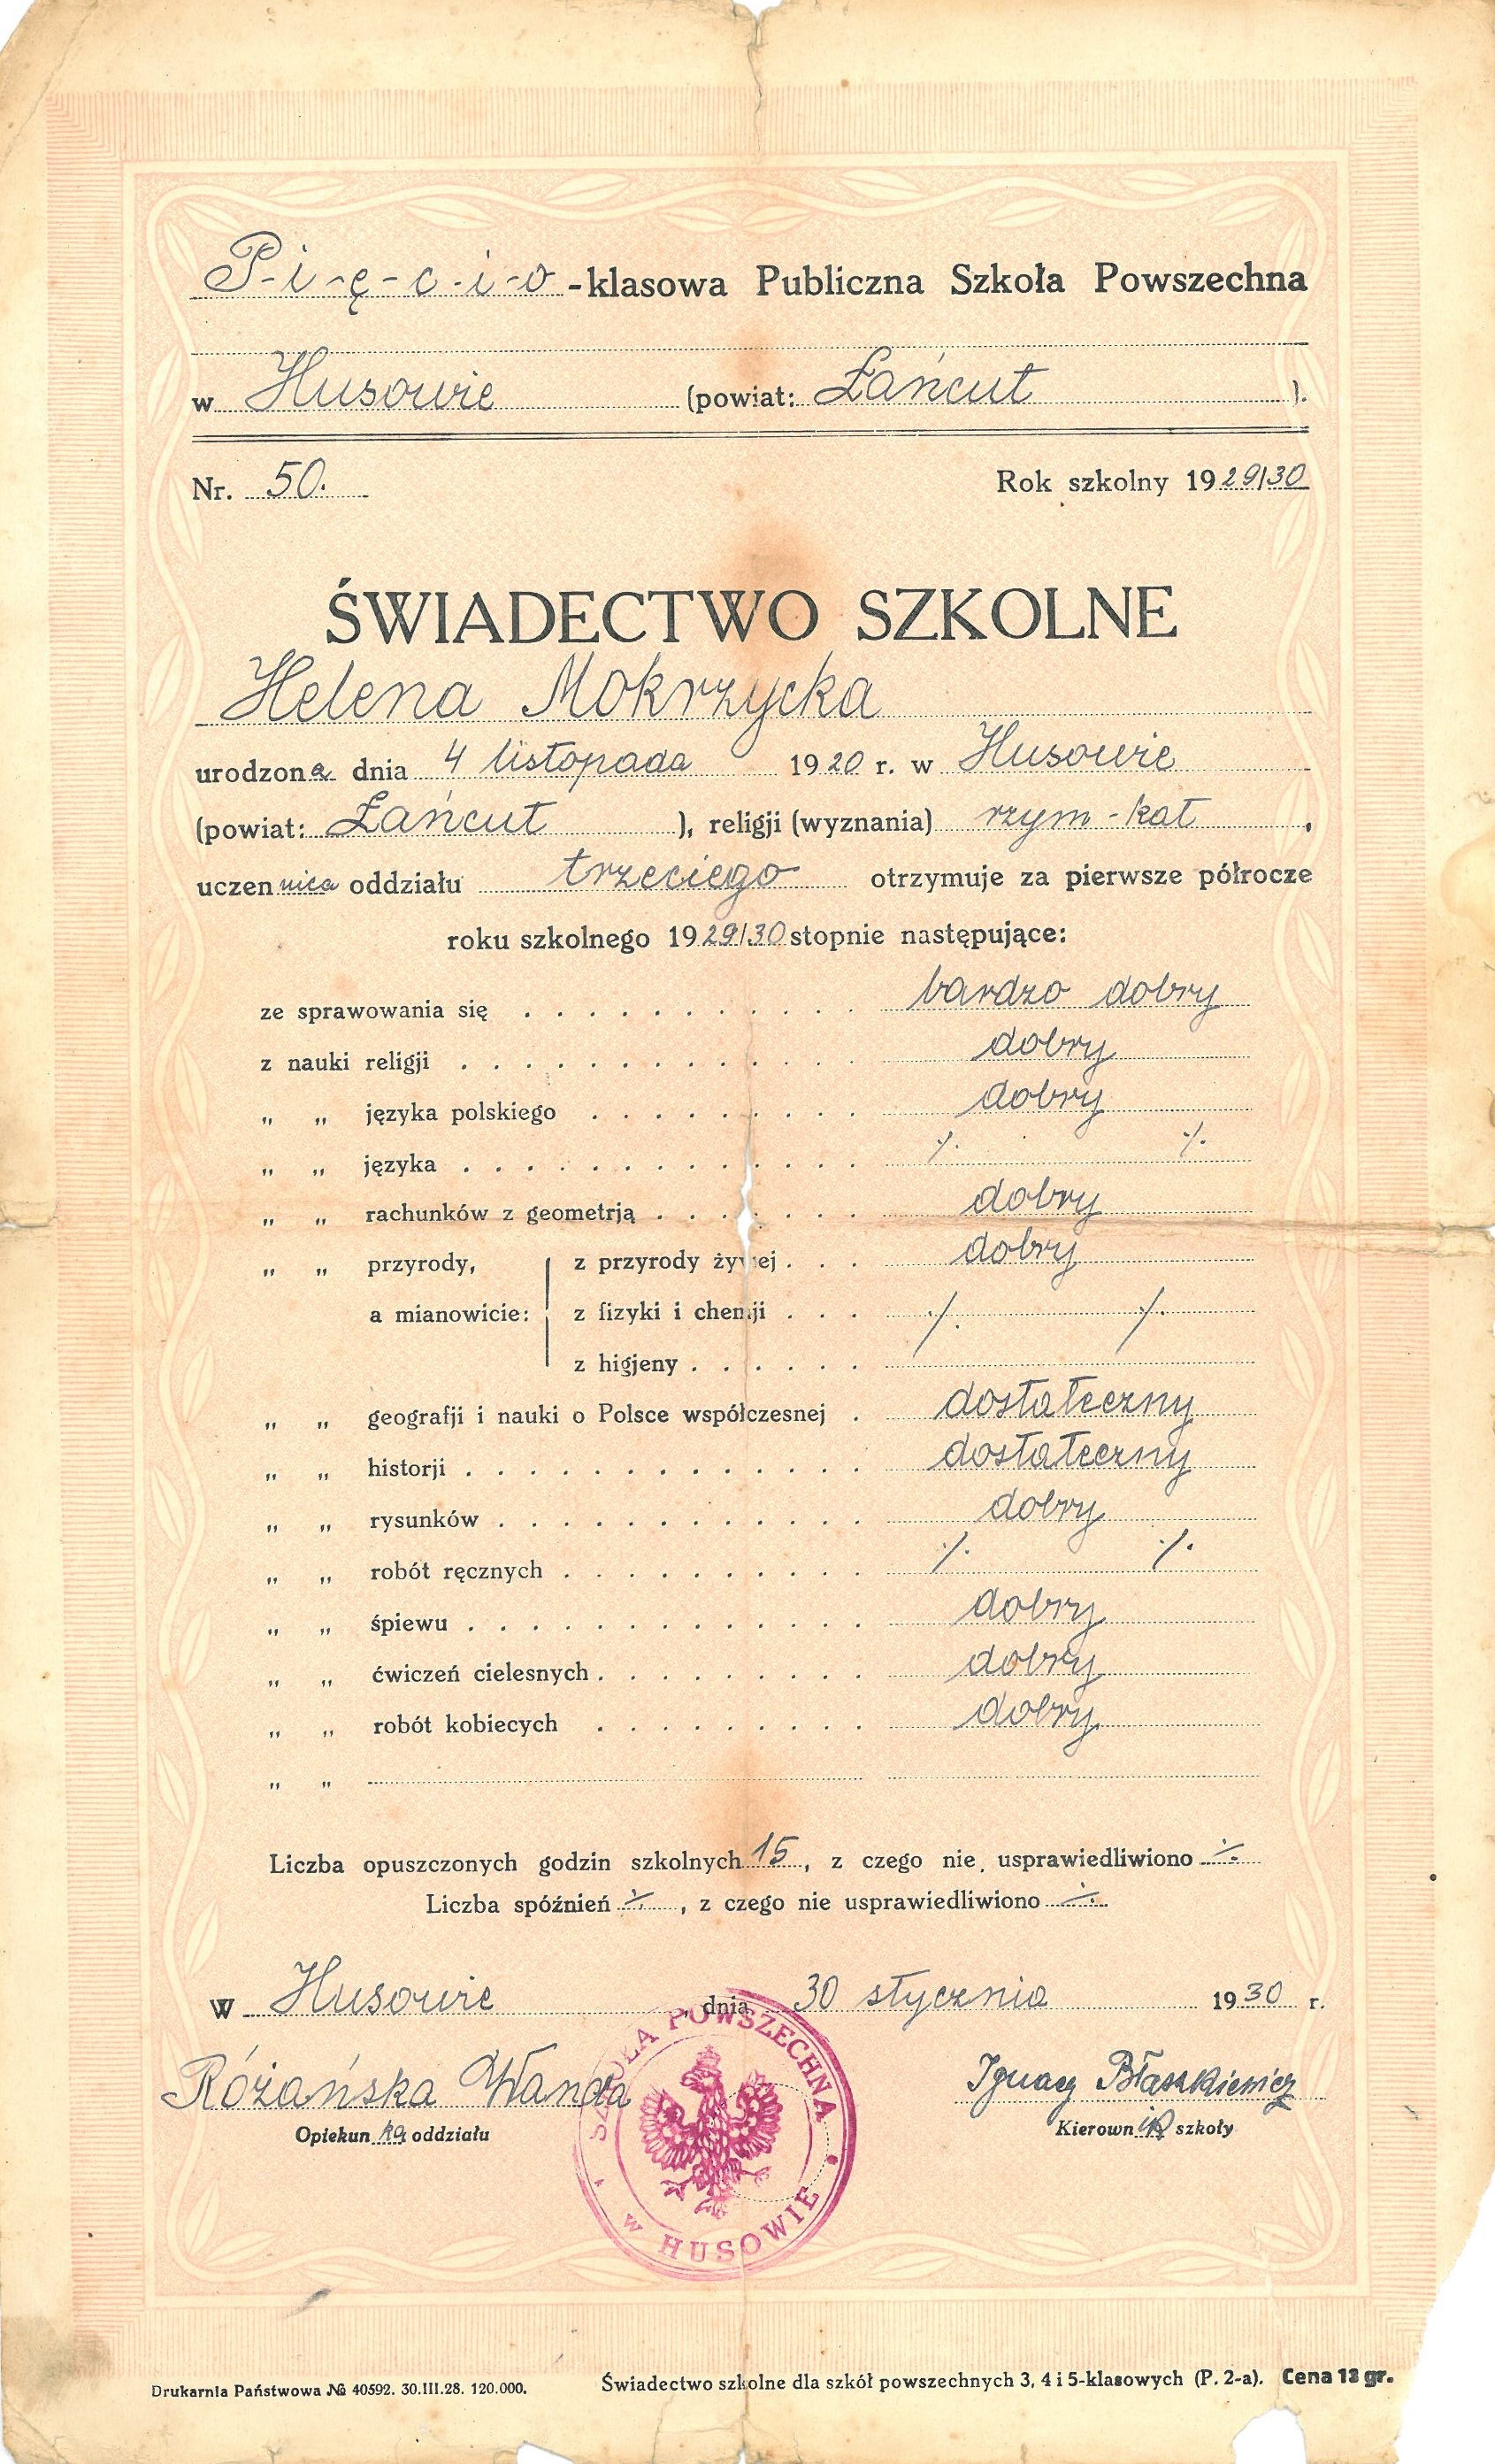 P-i-ę-c-i-o-klasowa Publiczna Szkoła Powszechna
w Husowie (powiat: Łańcut ).
Nr. 50. Rok szkolny 1929/30
ŚWIADECTWO SZKOLNE
Helena Mokrzycka
urodzona dnia 4 listopada 1920 r. w Husowie
(powiat: Łańcut ), religji (wyznania) rzym-kat ,
uczennica oddziału trzeciego otrzymuje za pierwsze półrocze
roku szkolnego 1929/30 stopnie następujące:
ze sprawowania się . . . . . . . . . . . bardzo dobry
z nauki religji . . . . . . . . . . . . dobry
„ „ języka polskiego . . . . . . . . . dobry
„ „ języka . . . . . . . . . . . . . ·/. ·/.
„ „ rachunków z geometrją . . . . . . . dobry
„ „ przyrody, z przyrody żywej . . . dobry
a mianowicie: z fizyki i chemji . . . ·/. ·/.
z higjeny . . . . . .
„ „ geografji i nauki o Polsce współczesnej . dostateczny
„ „ historji . . . . . . . . . . . . . dostateczny
„ „ rysunków . . . . . . . . . . . . dobry
„ „ robót ręcznych . . . . . . . . . . ·/. ·/.
„ „ śpiewu . . . . . . . . . . . . . dobry
„ „ ćwiczeń cielesnych . . . . . . . . . dobry
„ „ robót kobiecych . . . . . . . . . dobry
„ „
Liczba opuszczonych godzin szkolnych 15, z czego nie usprawiedliwiono ·/.
Liczba spóźnień ·/. , z czego nie usprawiedliwiono ·/.
W Husowie , dnia 30 stycznia 1930 r.
Różańska Wanda Ignacy Błaszkiewicz
Opiekunka oddziału Kierownik szkoły
SZKOŁA POWSZECHNA
w HUSOWIE
Drukarnia Państwowa № 40592. 30.III.28. 120.000. Świadectwo szkolne dla szkół powszechnych 3, 4 i 5-klasowych (P. 2-a). Cena 13 gr.